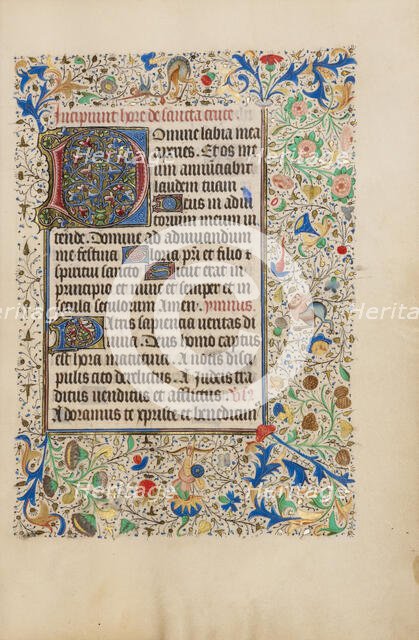 Incipiunt hore de sancta cruce
Domine labia mea
aperies. Et os me
um anunciabit
laudem tuam
Deus in adiu
torium meum in
tende. Domine ad adiuvandum
me festina Gloria pri et filio et
spiritui sancto Sicut erat in
principio et nunc et semper et in
secula seculorum Amen. ymnus
Patris sapiencia veritas di
vina. Deus homo captus
est hora matutina. A notis disci
pulis cito derelictus. A iudeis tra
ditus venditus et afflictus.
Adoramus te xpriste et benedicim
Heritage
Heritage
Heritage
Heritage
Heritage
Heritage
Heritage
Heritage
Heritage